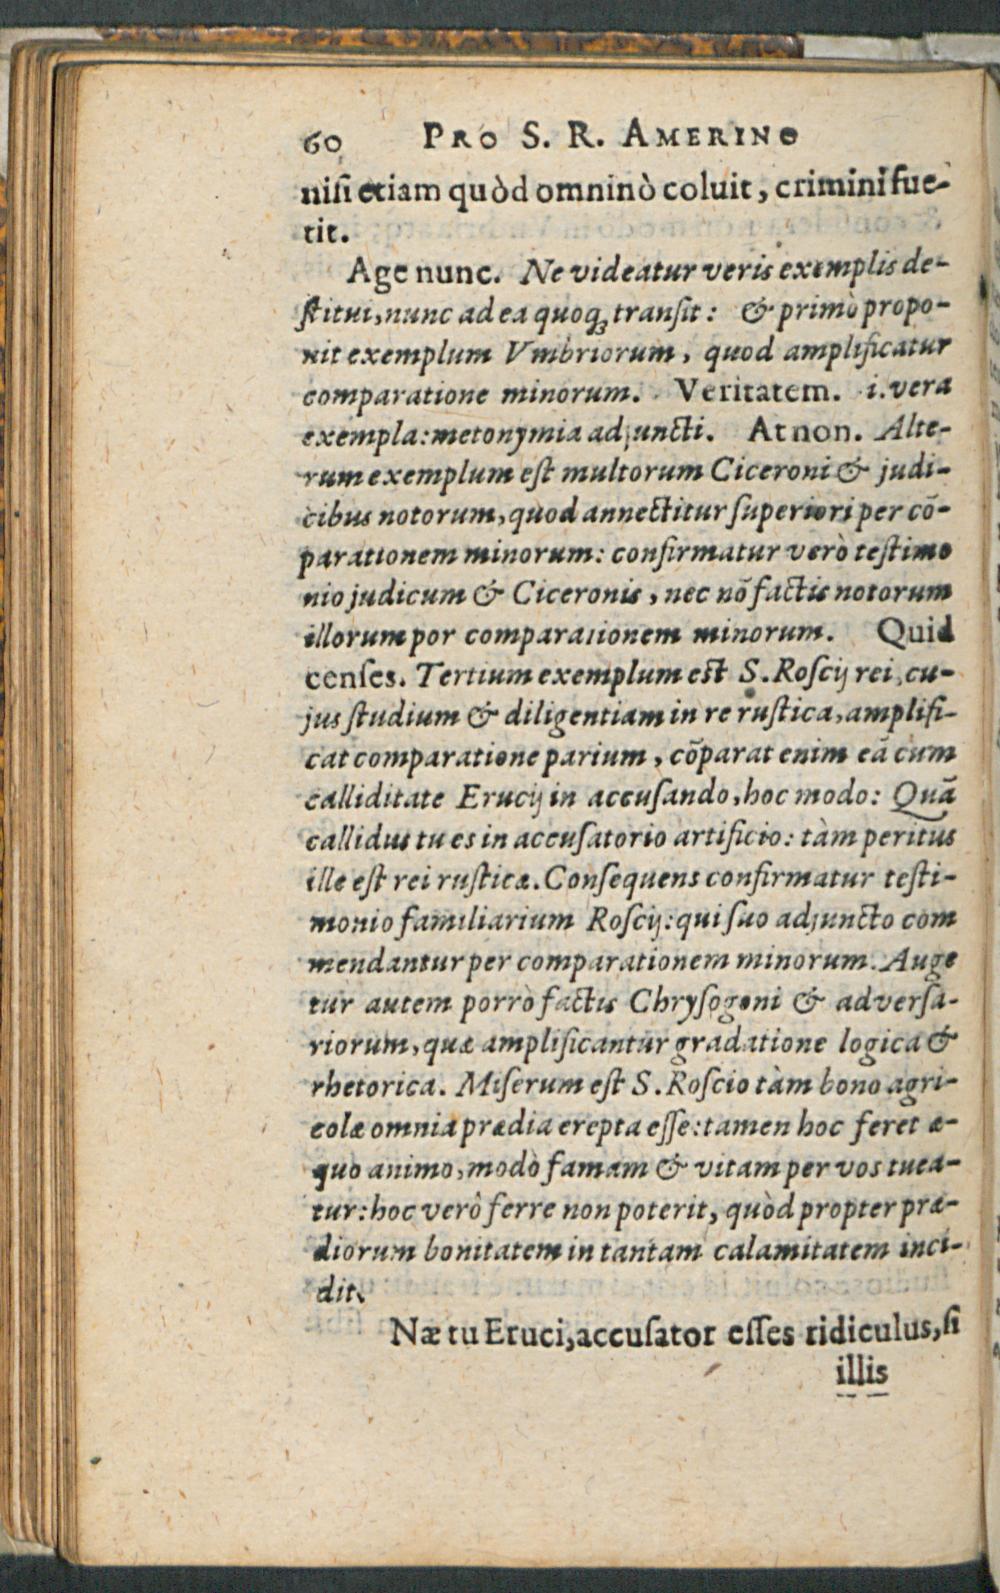 60 PRO S. R. AMERINO
niſi etiam quòd omninò coluit, crimini fue-
rit.
Age nunc. Ne videatur veris exemplis de-
ſtitui, nunc ad ea quoq; tranſit: & primò propo-
nit exemplum Vmbriorum, quod amplificatur
comparatione minorum. Veritatem. i. vera
exempla: metonymia adjuncti. At non. Alte-
rum exemplum eſt multorum Ciceroni & judi-
cibus notorum, quod annectitur ſuperiori per cō-
parationem minorum: confirmatur verò teſtimo
nio judicum & Ciceronis, nec nō factis notorum
illorum por comparationem minorum. Quid
cenſes. Tertium exemplum eſt S. Roſcij rei, cu-
jus ſtudium & diligentiam in re ruſtica, amplifi-
cat comparatione parium, cōparat enim eā cum
calliditate Erucij in accuſando, hoc modo: Quā
callidus tu es in accuſatorio artificio: tàm peritus
ille eſt rei ruſticæ. Conſequens confirmatur teſti-
monio familiarium Roſcij: qui ſuo adjuncto com
mendantur per comparationem minorum. Auge
tur autem porrò factis Chryſogoni & adverſa-
riorum, quæ amplificantur gradatione logica &
rhetorica. Miſerum eſt S. Roſcio tàm bono agri-
colæ omnia prædia erepta eſſe: tamen hoc feret æ-
quo animo, modò famam & vitam per vos tuea-
tur: hoc verò ferre non poterit, quòd propter præ-
diorum bonitatem in tantam calamitatem inci-
dit.
Næ tu Eruci, accuſator eſſes ridiculus, ſi
illis